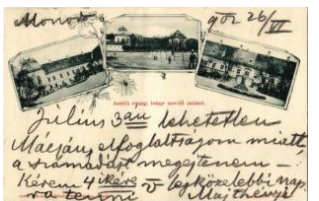 Monok 902 26/VI
Július 3 án lehetetlen
elfoglaltságom miatt
a számadást megejtenem –
Kérem 4 ikére v legközelebbi nap
ra tenni